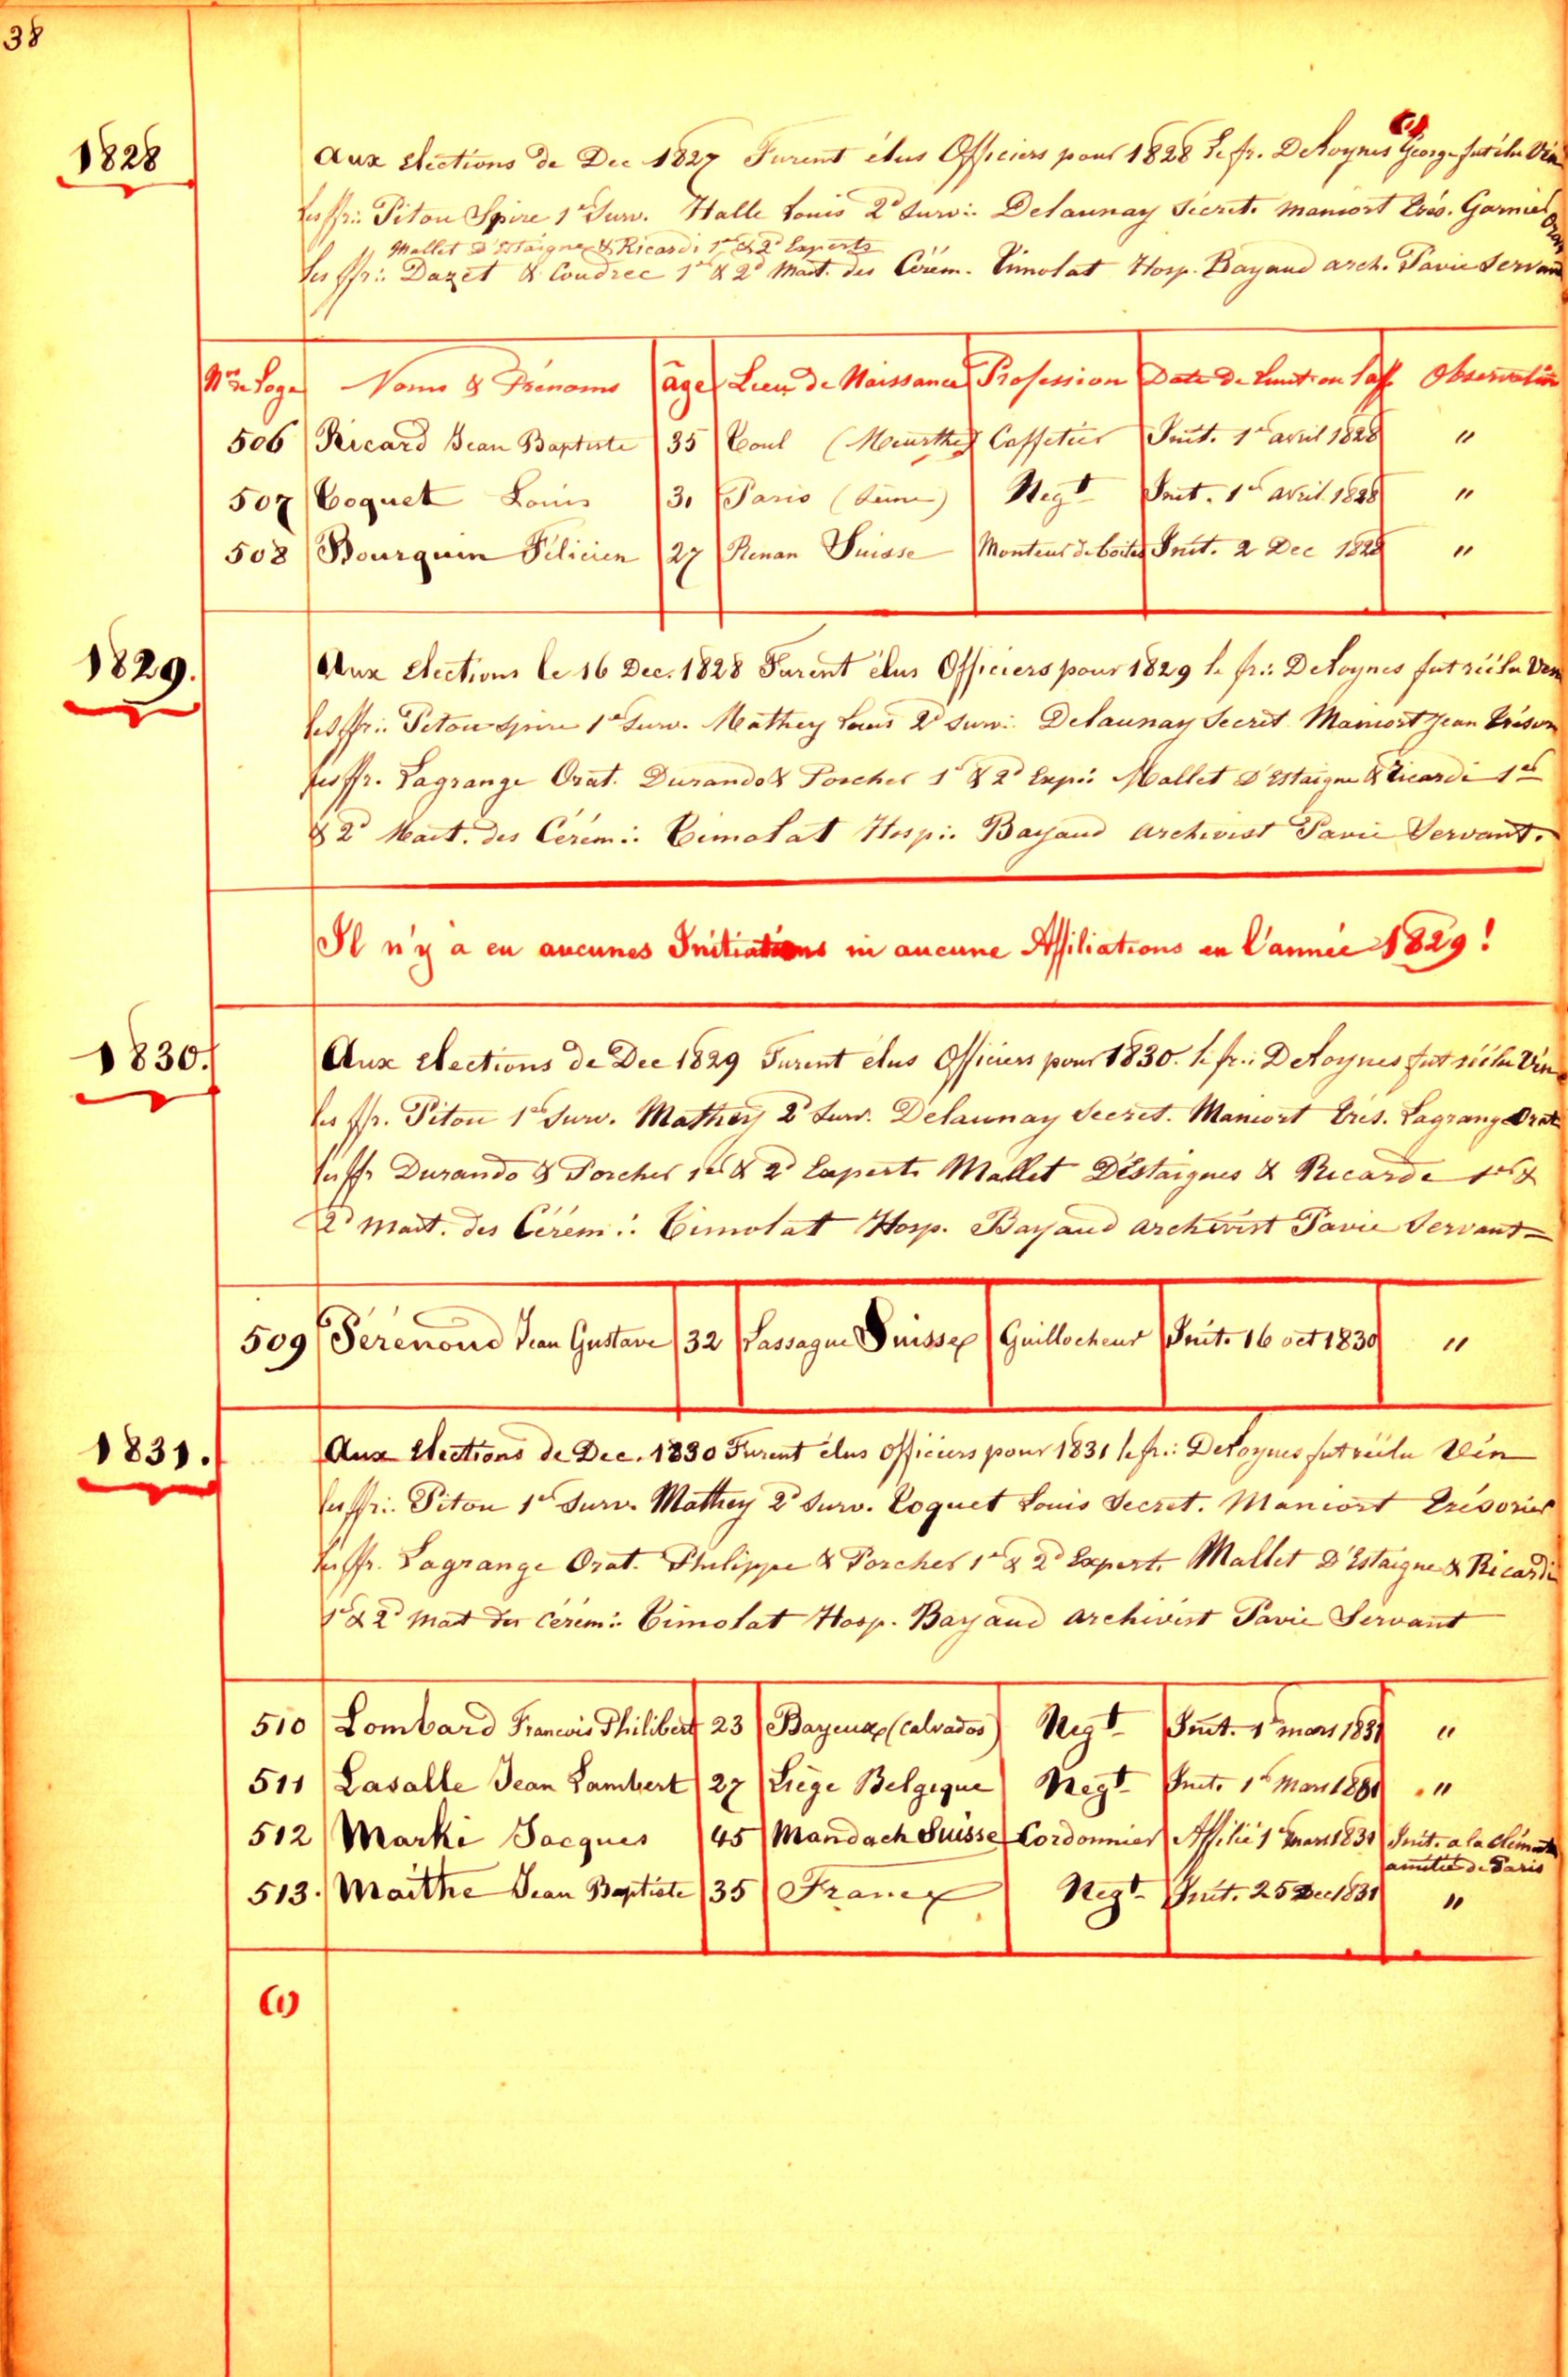 38
1828
Aux elections de Dec 1827 Furent élus Officiers pour 1828 Le fr. DeLoynes George fut élu Vén
(1)
Les ffr∴ Piton Spire 1er Surv. Halle Louis 2d Surv∴ Delaunay Secret. Maniort Trés. Garnier Orat
Mallet D'Estaigne & Ricardi 1er & 2d Experts
Les ffr∴ Dazet & Coudrec 1er & 2d Mait. des Cérém. Timolat Hosp. Bayaud arch. Pavie Servant
No de Loge Noms & Prénoms âge Lieu de Naissance Profession Date de L'init ou l'aff Observation
506 Ricard Jean Baptiste 35 Toul (Meurthe) Caffetier Init. 1er avril 1828 "
507 Coquet Louis 31 Paris (Seine) Negt Init. 1er avril 1828 "
508 Bourquin Félicien 27 Renan Suisse Monteur de boites Init. 2 Dec 1828 "
1829.
Aux elections le 16 Dec. 1828 Furent élus Officiers pour 1829 le fr∴ DeLoynes fut réélu Ven
Les ffr∴ Piton Spire 1er Surv. Mathey Louis 2d Surv∴ Delaunay Secret. Maniort Jean Trésor
Les ffr. Lagrange Orat. Durando & Porcher 1er & 2d Exp∴ Mallet D'Estaigne & Ricardi 1er
& 2d Mait. des Cérém∴ Timolat Hosp∴ Bayaud archivist Pavie Servant.
Il n'y a eu aucunes Initiations ni aucune Affiliations en l'année 1829!
1830.
Aux elections de Dec 1829 Furent élus Officiers pour 1830. le fr∴ DeLoynes fut réélu Vén
Les ffr. Piton 1er Surv. Mathey 2d Surv. Delaunay Secret. Maniort Trés. Lagrange Orat
Les ffr Durando & Porcher 1er & 2d Experts Mallet D'Estaignes & Ricarde 1er &
2d Mait. des Cérém∴ Timolat Hosp. Bayaud archivist Pavie Servant
509 Pérénoud Jean Gustave 32 Lassagne Suisse Guillocheur Init. 16 oct 1830 "
1831.
Aux Elections de Dec. 1830 Furent élus officiers pour 1831 le fr∴ DeLoynes fut réélu Vén
Les ffr∴ Piton 1er Surv. Mathey 2d Surv. Coquet Louis Secret. Maniort Trésorier
Les ffr. Lagrange Orat. Philippe & Porcher 1er & 2d Expert. Mallet D'Estaigne & Ricardi
1er & 2d Mait des cérém∴ Timolat Hosp. Bayaud archivist Pavie Servant
510 Lombard Francois Philibert 23 Bayeux (calvados) Negt Init. 1er mars 1831 "
511 Lasalle Jean Lambert 27 Liège Belgique Negt Init. 1er Mars 1831 "
512 Marki Jacques 45 Mandach Suisse Cordonnier Affilié 1er mars 1831 Init. a la clémente
amitié de Paris
513. Maithe Jean Baptiste 35 France Negt Init. 25 Dec 1831 "
(1)